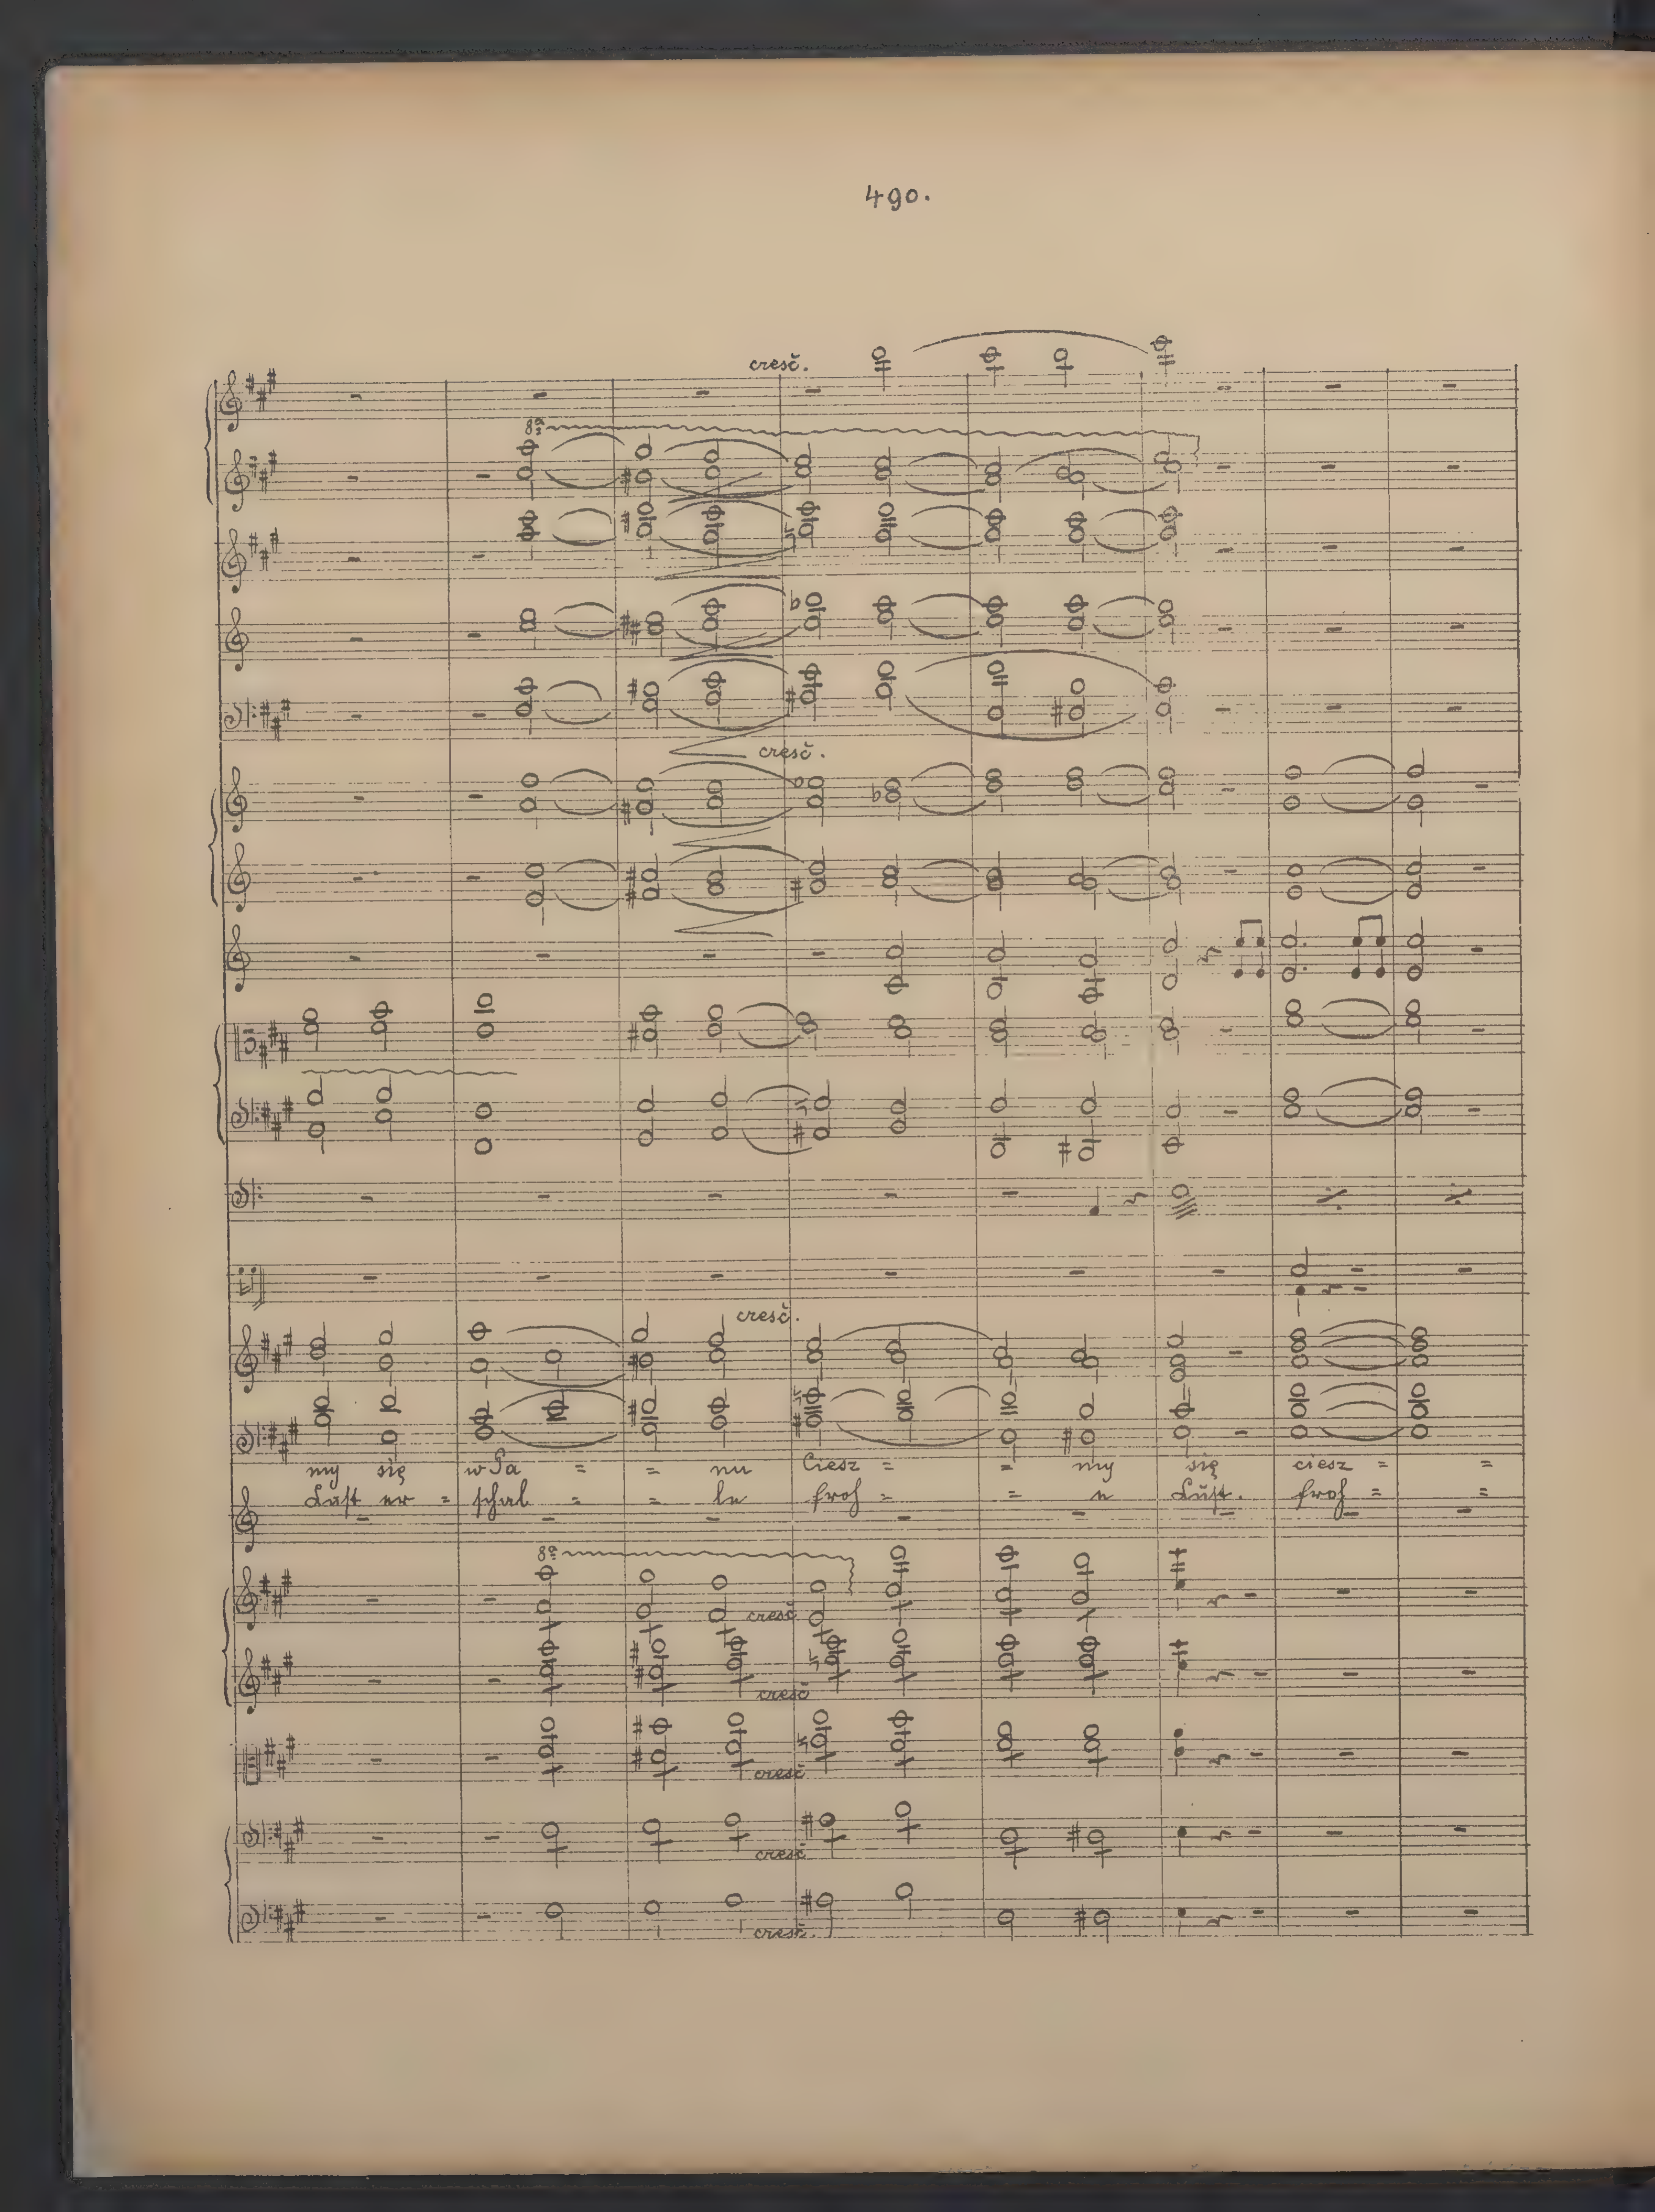 490.
cresč.
8ª
cresč.
cresč.
my się w Pa = = nu Ciesz = = my się ciesz = =
Lust er = schal = = le froh = = e Lust. froh = =
8ª
cresč
cresč
cresč
cresč
cresč.